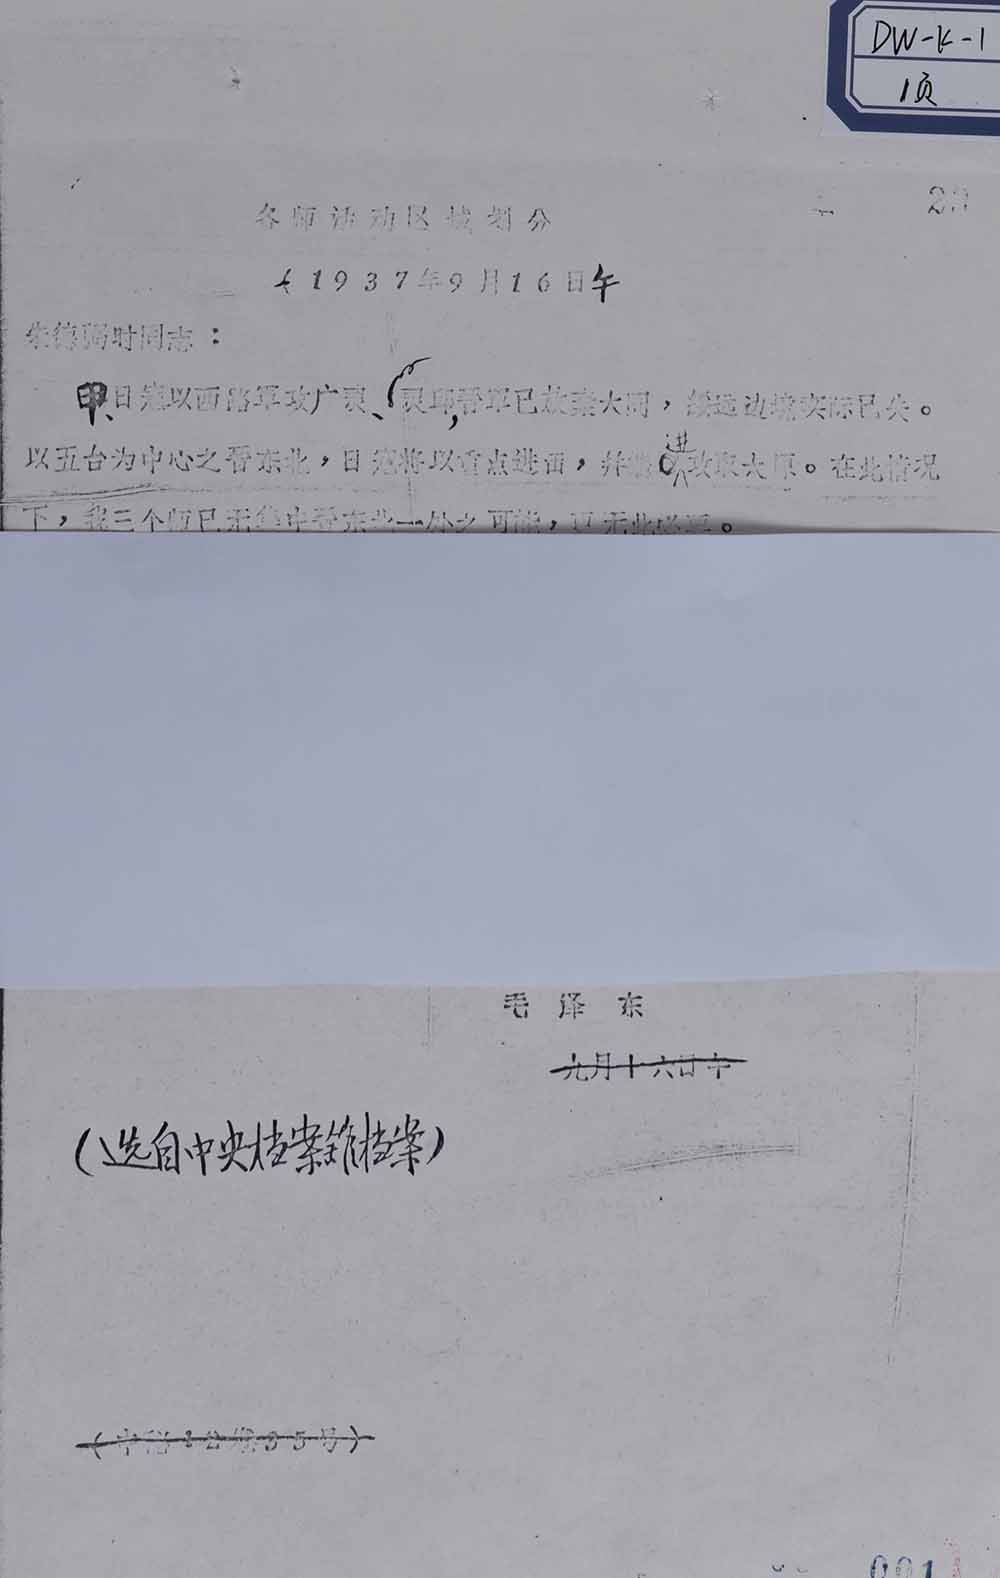 DW-K-1
1页
29
各师活动区域划分
(1937年9月16日午
朱德弼时同志：
甲、日寇以西路军攻广灵、灵邱，晋军已放弃大同，绥远边境实际已失。
以五台为中心之晋东北，日寇将以重点进击，并 进攻取太原。在此情况
下，我三个师已无集中晋东北一处之可能，更无此必要。
毛泽东
九月十六日午
(选自中央档案馆档案)
001